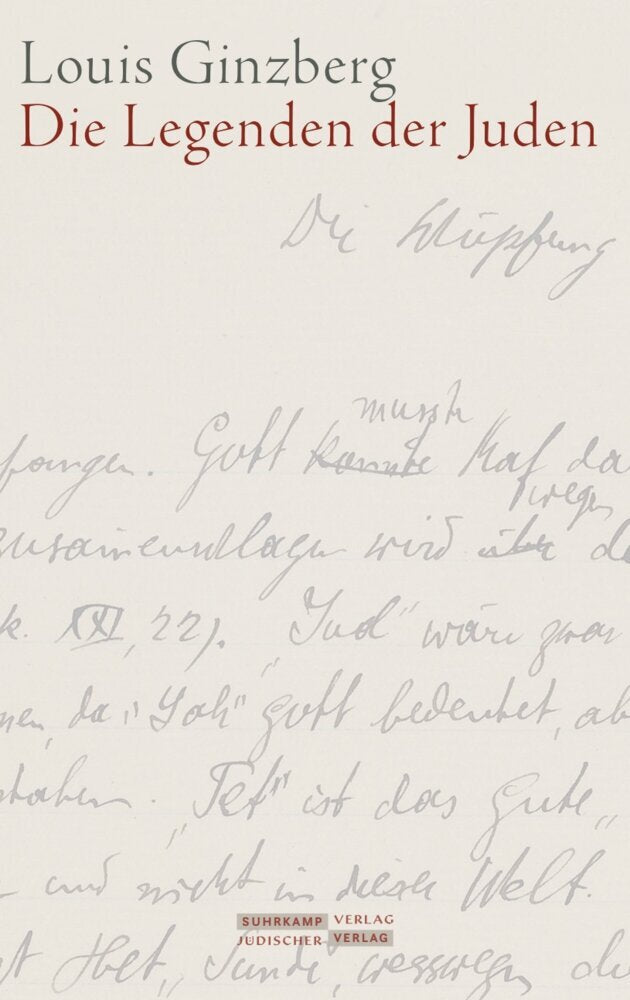 Louis Ginzberg
Die Legenden der Juden
Die Schöpfung
musste
fangen. Gott konnte Kaf da
wegen
zusammenschlagen wird über de
k. XXI, 22). „Jud" wäre zwar
men, da „Yah" Gott bedeutet, ab
staben. „Tet" ist das Gute„
und nicht in dieser Welt.
SUHRKAMP VERLAG
JÜDISCHER VERLAG
Het „Sünde", wesswegen die